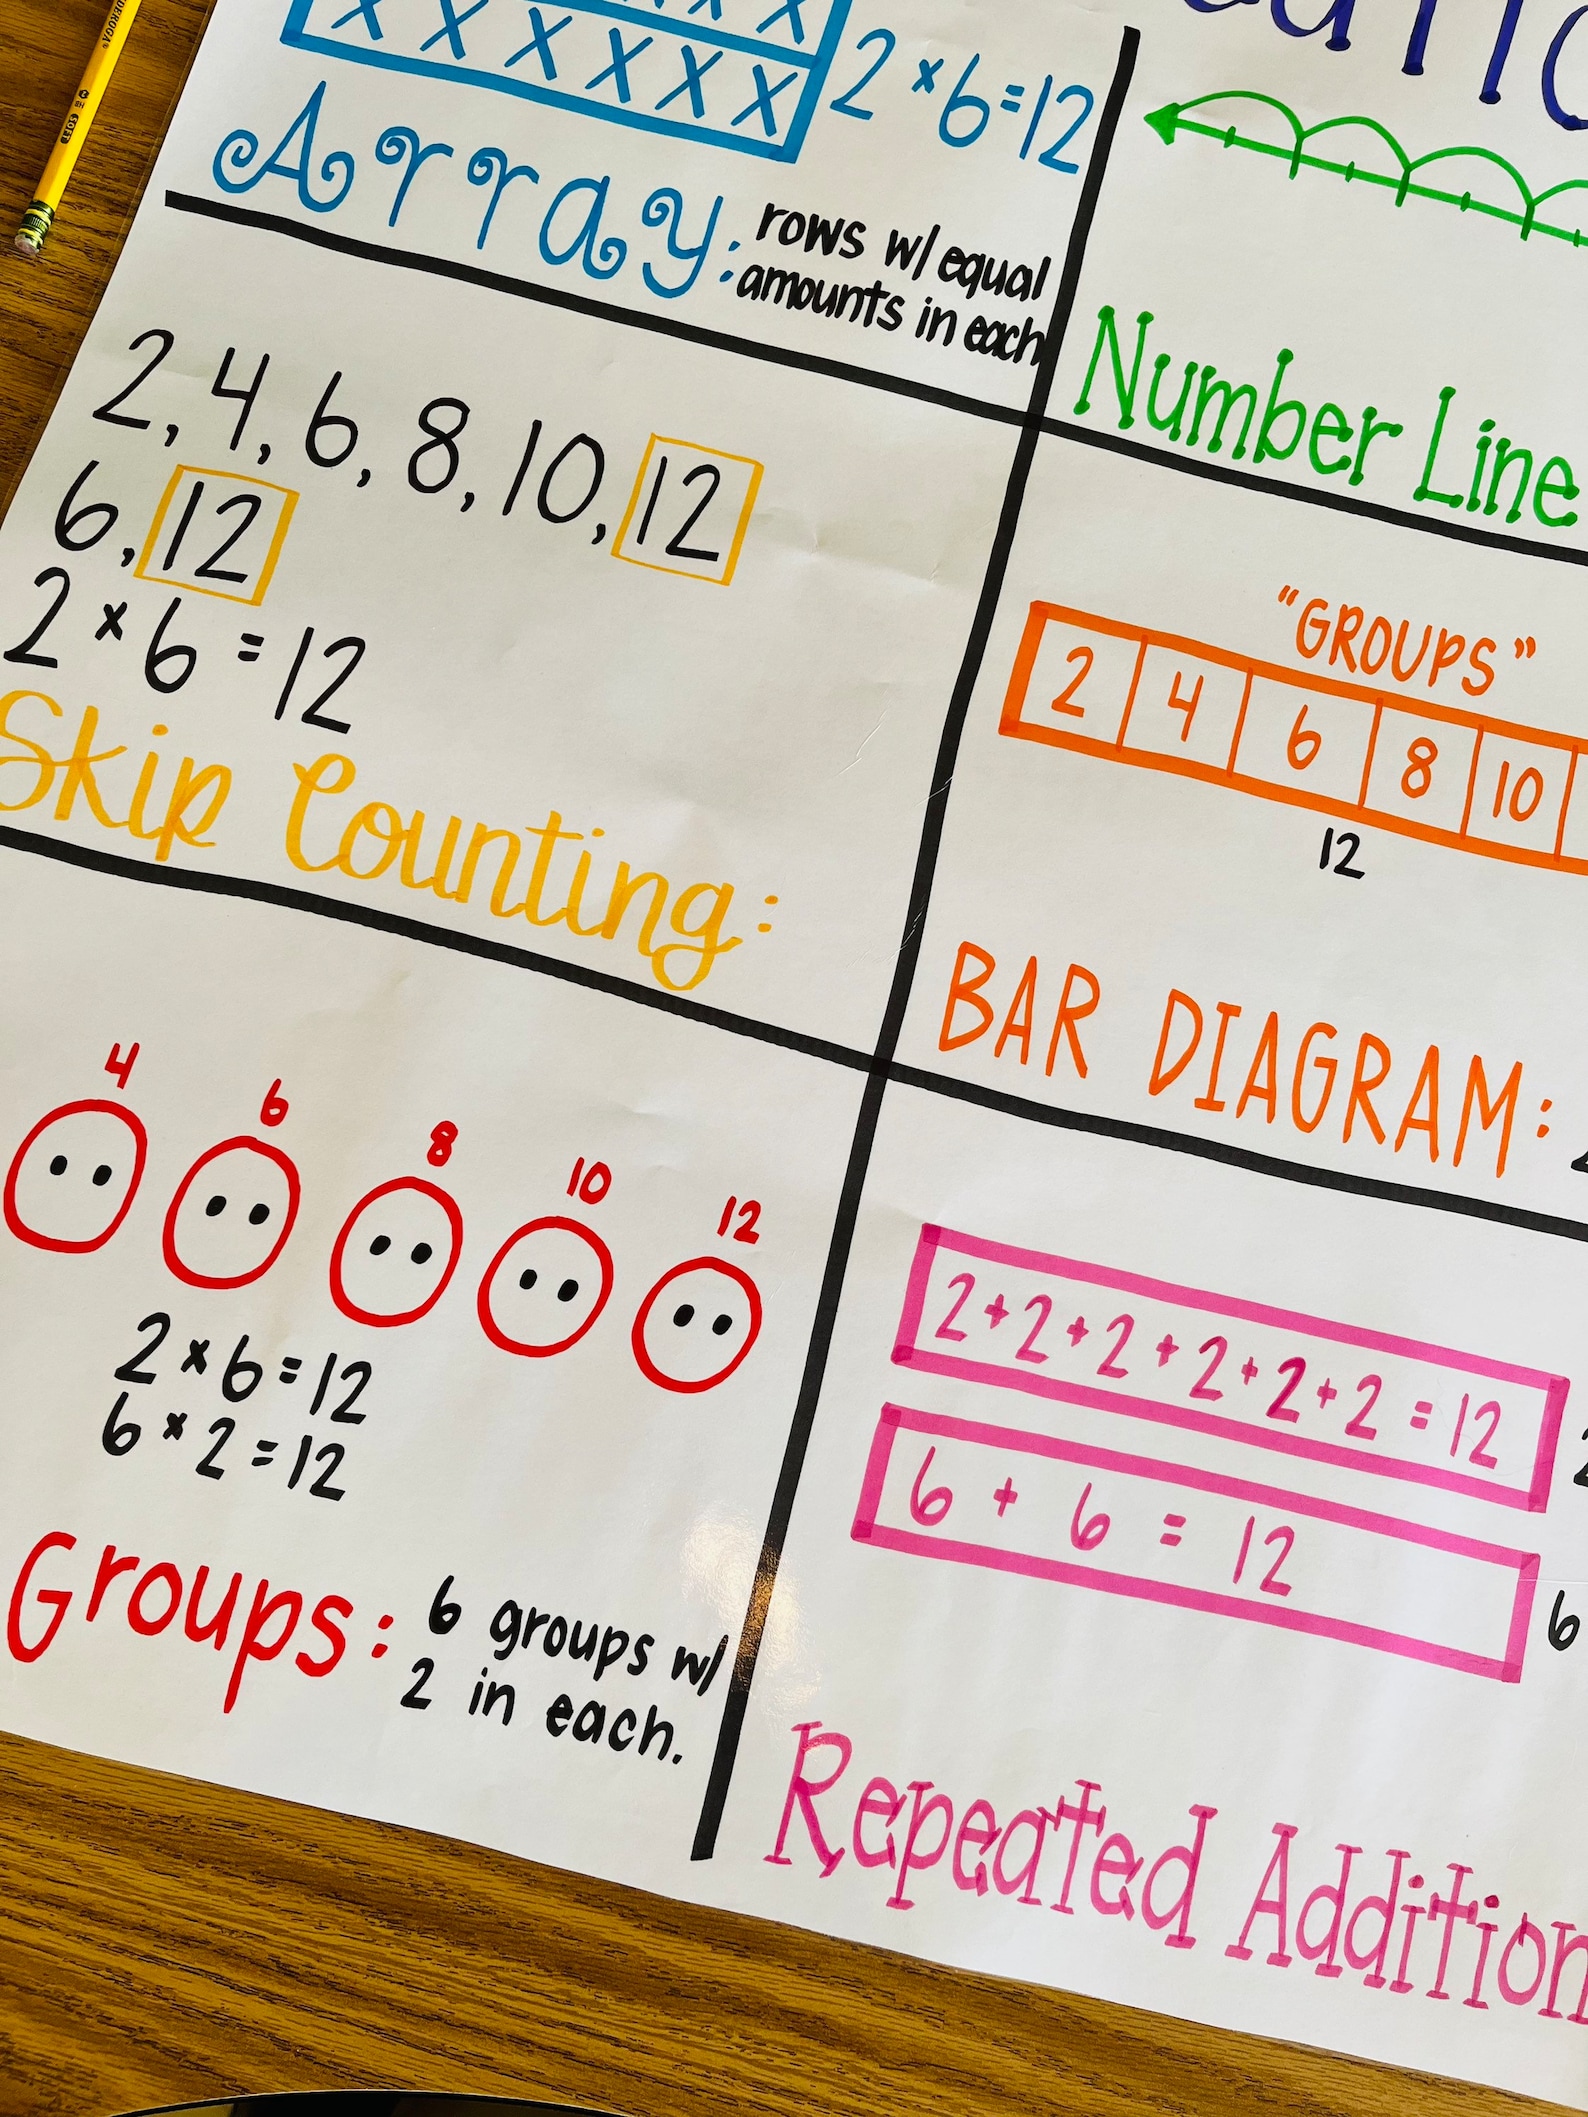 X X X X X X
2 × 6 = 12
Array: rows w/ equal
amounts in each
Number Line
2, 4, 6, 8, 10, 12
6, 12
2 × 6 = 12
Skip Counting:
"GROUPS"
2 4 6 8 10
12
BAR DIAGRAM:
4 6 8 10 12
2 × 6 = 12
6 × 2 = 12
Groups: 6 groups w/
2 in each.
2 + 2 + 2 + 2 + 2 + 2 = 12
6 + 6 = 12
6
Repeated Addition